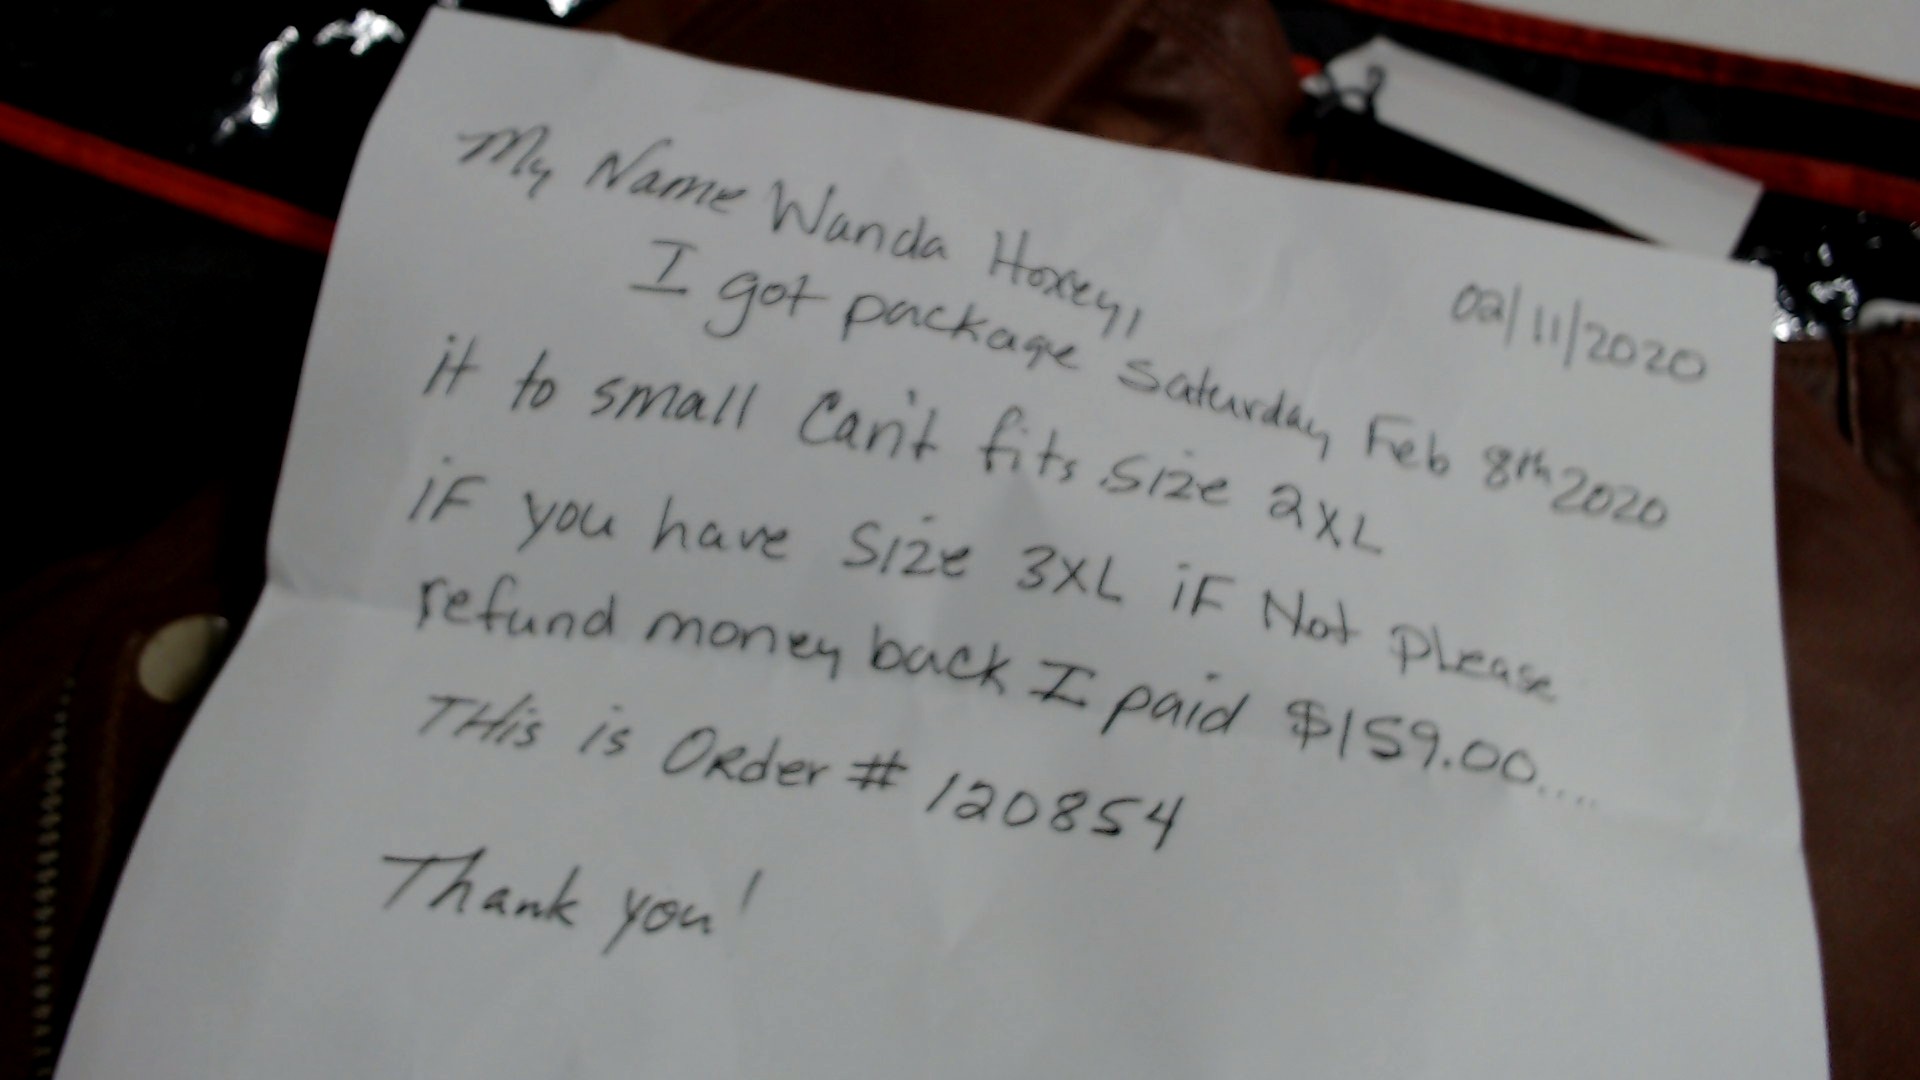 My Name Wanda Hoxey,
02/11/2020
I got package Saturday Feb 8th 2020
it to small Can't fits size 2XL
iF you have Size 3XL iF Not Please
refund money back I paid $159.00....
THis is ORder # 120854
Thank you!